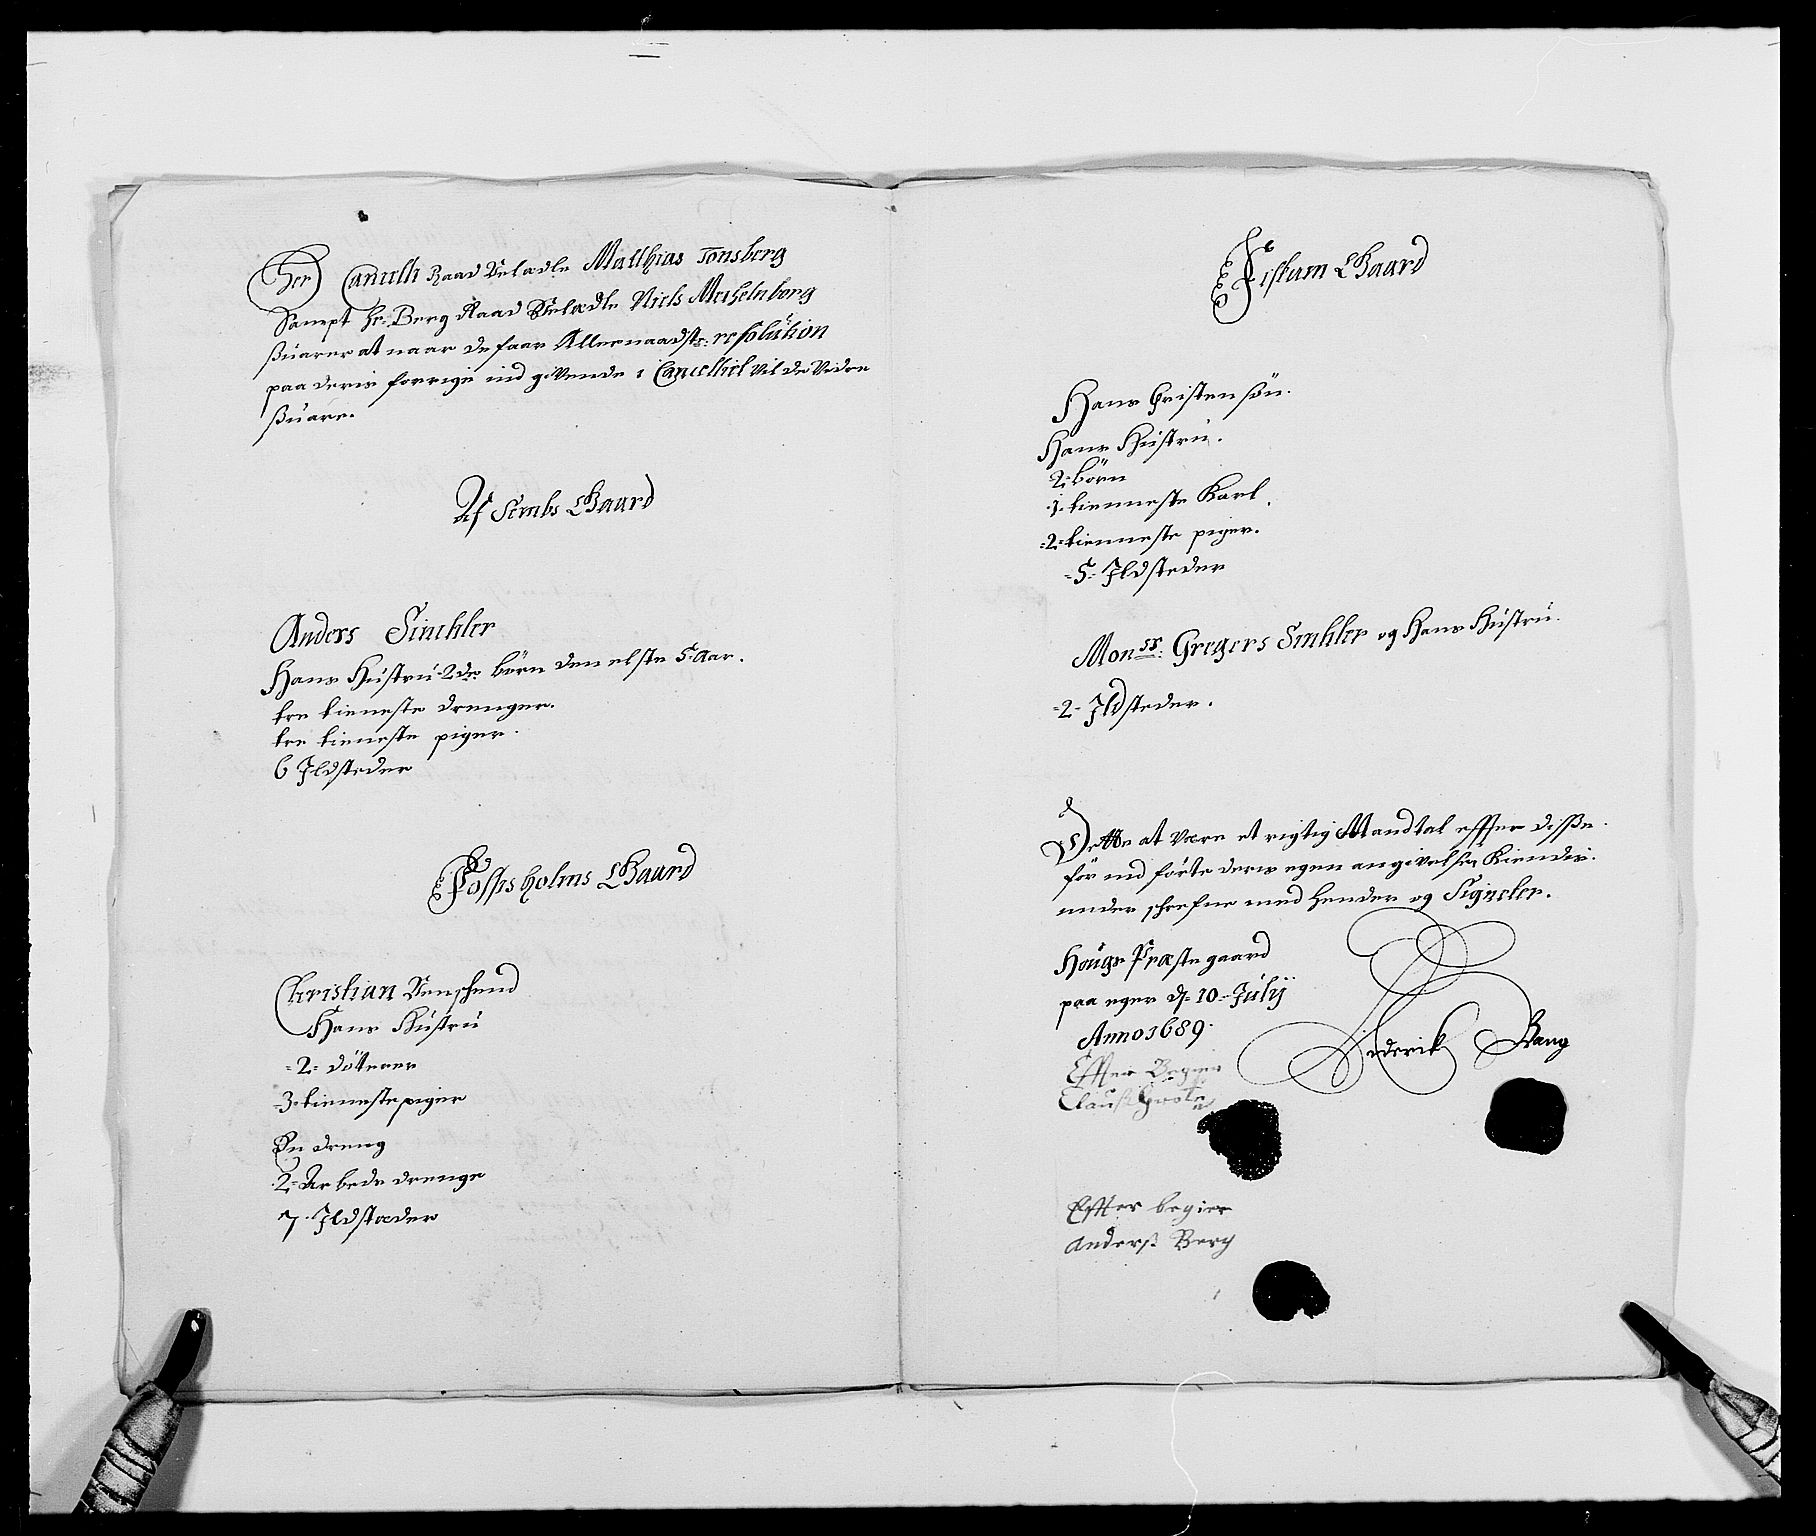 Her Cancelli Raad Velædle Matthias Tonsberg
Sampt Hr: Berg Raad Velædle Niels
ßuarer at naar de faar Allernaadste: resolution
paa deris forrige ind givende i Cancelliet vil de Videre
ßuare.
Af Sembs Gaard
Anders Sinchler
Hans Hustru 2de börn den elste 5 Aar.
tre tieneste drenger.
tre tieneste piger.
6 Ildsteder
Fossesholms Gaard
Christian
Hans Hustru
-2- döttrer
-3- tienneste piger
En dreng
-2- Arbeds drenge
7. Ildstæder
Fiskum Gaard
Hans Christensön.
Hans Hustru.
2: börn
-1- tienneste Karl
-2- tienneste piger.
-5- Ildsteder
Monsr: Gregers Sinchler og Hans Hustru.
-2- Ildsteder.
Dette at være et rigtig Mandtal effter disse
för ind förte deris egen angivelse, Kiendis
under schrefne med Hender og Signeter.
Houge Præste gaard
paa eger d- 10- Julij
Anno 1689.
Frederik Bang
Effter Begier
Clauß
Effter begier
Anderß Berg